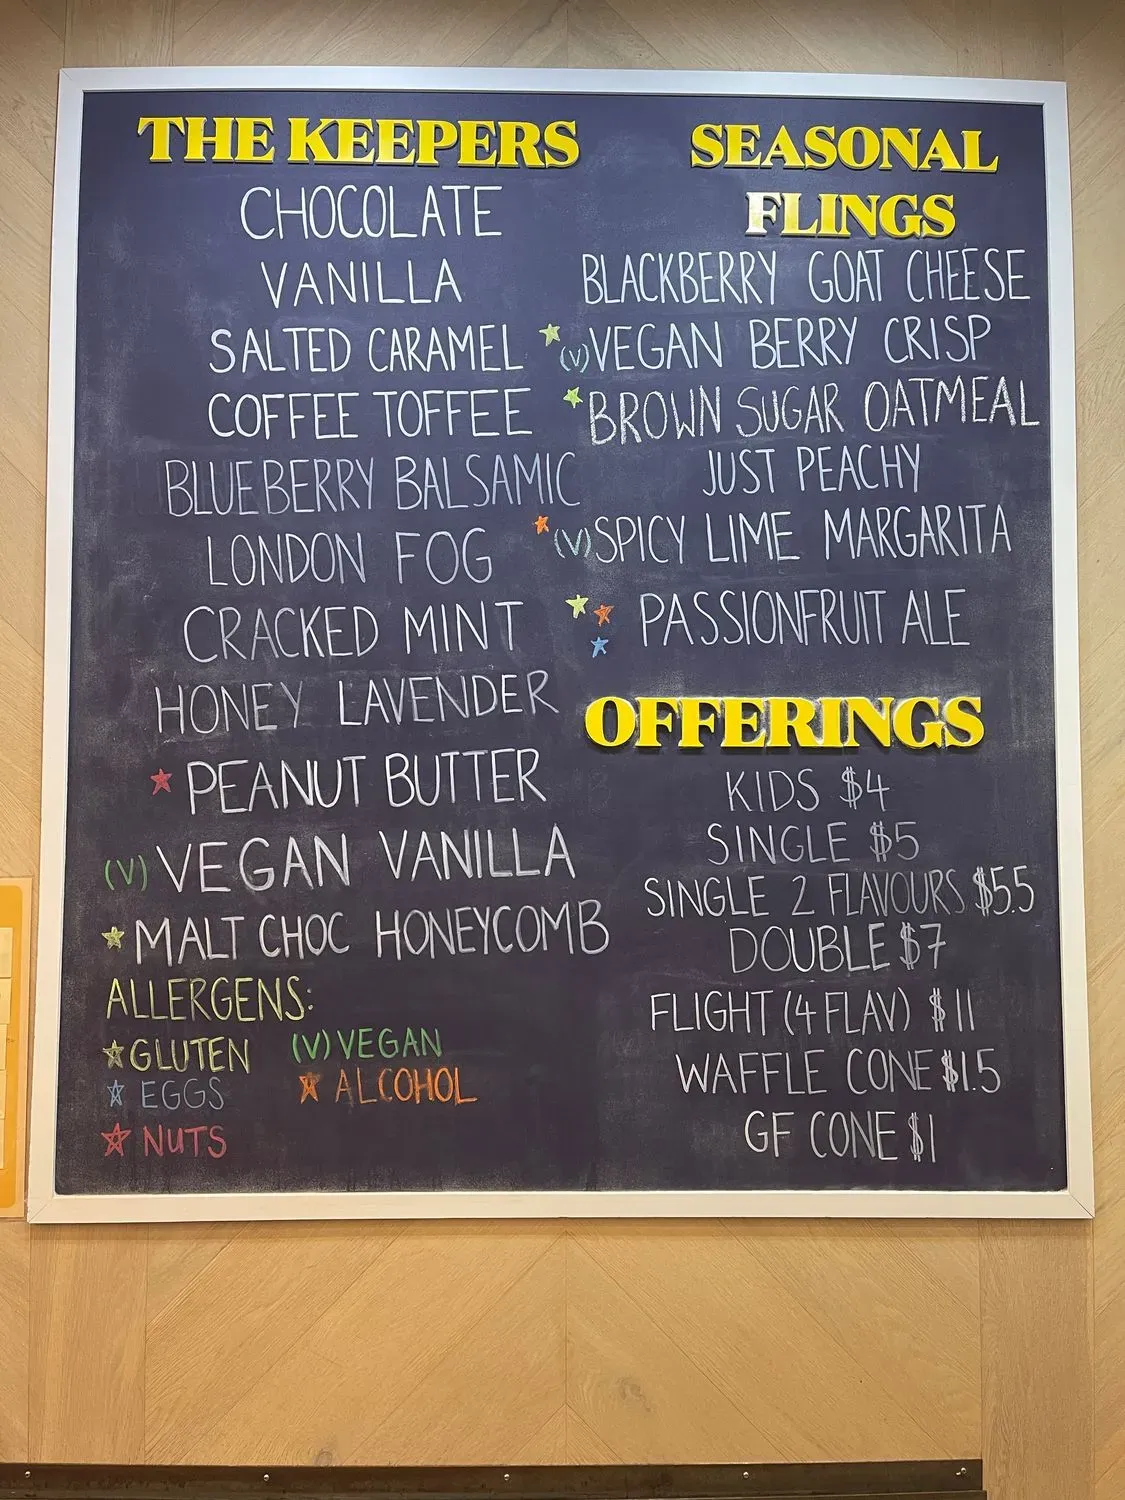 THE KEEPERS
CHOCOLATE
VANILLA
SALTED CARAMEL
COFFEE TOFFEE
BLUEBERRY BALSAMIC
LONDON FOG
CRACKED MINT
HONEY LAVENDER
PEANUT BUTTER
(V) VEGAN VANILLA
MALT CHOC HONEYCOMB
ALLERGENS:
GLUTEN (V) VEGAN
EGGS ALCOHOL
NUTS
SEASONAL
FLINGS
BLACKBERRY GOAT CHEESE
(V) VEGAN BERRY CRISP
BROWN SUGAR OATMEAL
JUST PEACHY
(V) SPICY LIME MARGARITA
PASSIONFRUIT ALE
OFFERINGS
KIDS $4
SINGLE $5
SINGLE 2 FLAVOURS $5.5
DOUBLE $7
FLIGHT (4 FLAV) $11
WAFFLE CONE $1.5
GF CONE $1